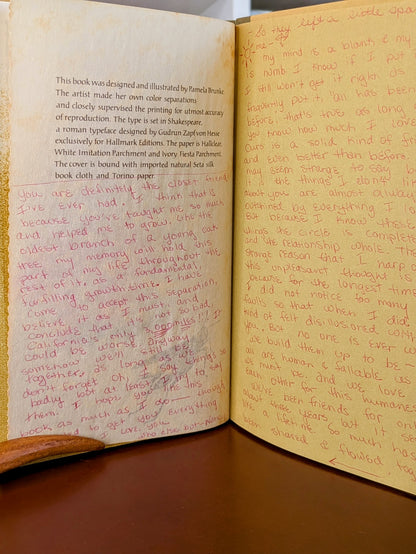 This book was designed and illustrated by Pamela Brunke.
The artist made her own color separations
and closely supervised the printing for utmost accuracy
of reproduction. The type is set in Shakespeare,
a roman typeface designed by Gudrun Zapf von Hesse
exclusively for Hallmark Editions. The paper is Hallclear,
White Imitation Parchment and Ivory Fiesta Parchment.
The cover is bound with imported natural Seta silk
book cloth and Torino paper.
you are definitely the closest friend
I've ever had. I think that is
because you've taught me so much
and helped me to grow. Like the
oldest branch of a young oak
tree my memory will hold this
part of my life throughout the
rest of it, as a fundamental,
fulfilling growth time. I have
come to accept this separation,
before, as I must, and
conclude that it's not so bad.
California's pretty !! I
could be worst. Anyway
somehow we'll still be
together as long as we
don't forget. OK, I say being so
badly, but at least I still say
them. I hope you like this
book as much as I do — though
to get you everything
Love you
who else but-
So they left a little space
for me-
my mind is a blank & my
is numb I know if you
I still won't get it right. As
frequently put it, all has been
before, that's true as long
you know how much I love
Ours is a solid kind of
and even better than before
may seem strange to say
all the things I
about you are almost always
outshined by everything I
But because I know these
things the circle is complete
and the relationship whole. The
strange reason that I harp
this unpleasant thought
because for the longest time
I did not notice too many
faults so that when I did
kind of felt disillusioned
you. But no one is ever
we build them up to be-
all are human & fallible as
must be. And we love
each other for this humaness
You've been friends for only
about three years, but it
like a lifetime so much has
been shared & flowed